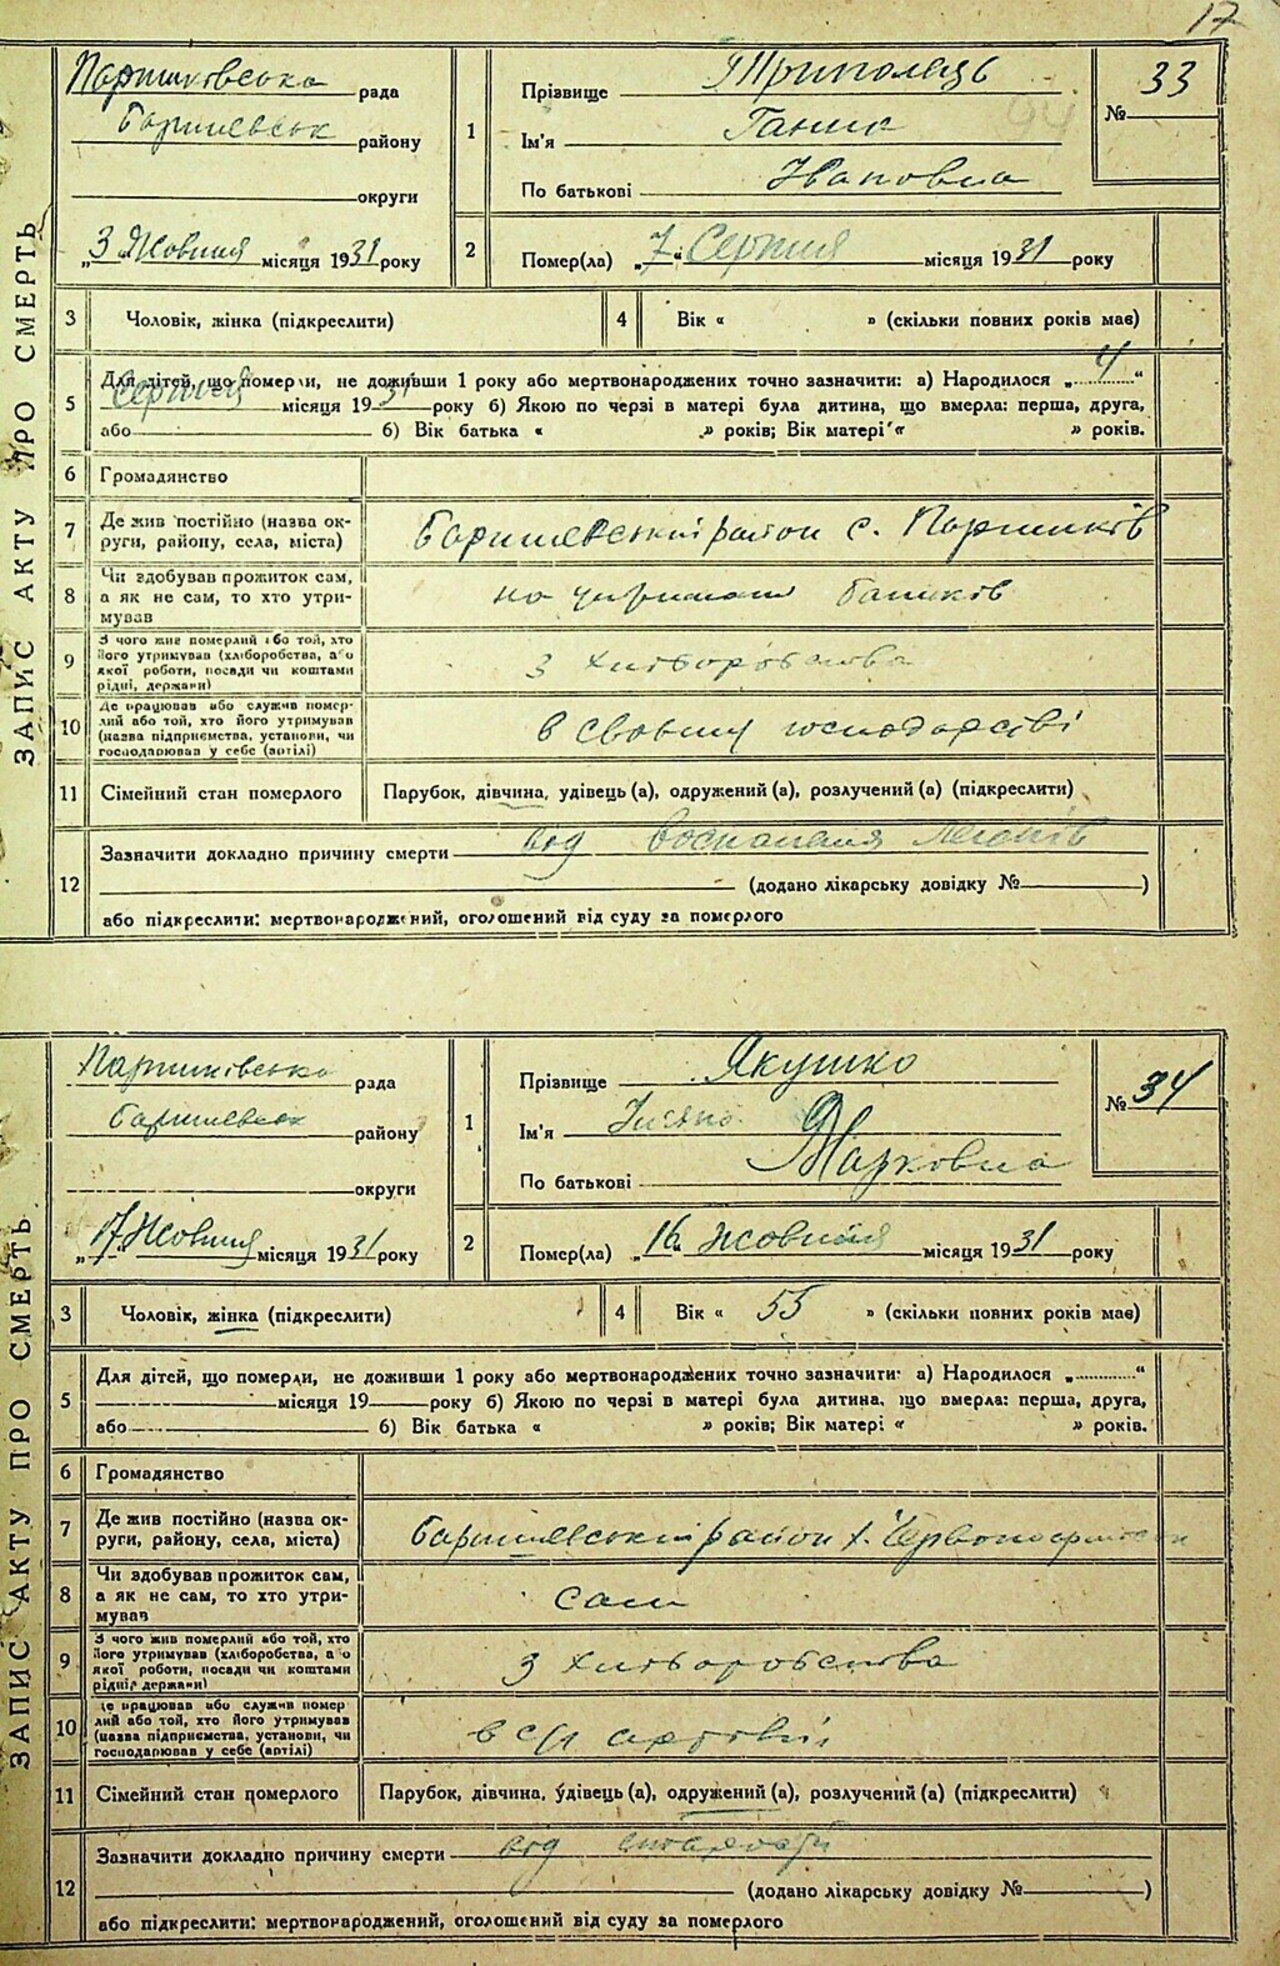 17
ЗАПИС АКТУ ПРО СМЕРТЬ
Паришківська рада
Баришевськ району
округи
„3“ Жовтня місяця 1931 року
1
Прізвище Триполець
Ім'я Ганна
По батькові Івановна
№ 33
2
Помер(ла) „7“ Серпня місяця 1931 року
3 Чоловік, жінка (підкреслити)
4 Вік « » (скільки повних років має)
5
Для дітей, що померли, не доживши 1 року або мертвонароджених точно зазначити: а) Народилося „4“
Серпня місяця 1931 року б) Якою по черзі в матері була дитина, що вмерла: перша, друга,
або б) Вік батька « » років; Вік матері « » років.
6 Громадянство
7
Де жив постійно (назва ок-
руги, району, села, міста)
Баришевський район с. Паришків
8
Чи здобував прожиток сам,
а як не сам, то хто утри-
мував
на батьків
9
З чого жив померлий або той, хто
його утримував (хліборобства, а о
якої роботи, посади чи коштами
рідні, держави)
з хліборобства
10
Де працював або служив помер-
лий або той, хто його утримував
(назва підприємства, установи, чи
господарював у себе (артілі)
в своєму господарстві
11 Сімейний стан померлого
Парубок, дівчина, удівець (а), одружений (а), розлучений (а) (підкреслити)
12
Зазначити докладно причину смерти від воспаления легенів
(додано лікарську довідку № )
або підкреслити: мертвонароджений, оголошений від суду за померлого
ЗАПИС АКТУ ПРО СМЕРТЬ
Паришківська рада
Баришевськ району
округи
„17“ Жовтня місяця 1931 року
1
Прізвище Якушко
Ім'я
По батькові Марковна
№ 34
2
Помер(ла) „16“ жовтня місяця 1931 року
3 Чоловік, жінка (підкреслити)
4 Вік « 55 » (скільки повних років має)
5
Для дітей, що померли, не доживши 1 року або мертвонароджених точно зазначити: а) Народилося „ “
місяця 19 року б) Якою по черзі в матері була дитина, що вмерла: перша, друга,
або б) Вік батька « » років; Вік матері « » років.
6 Громадянство
7
Де жив постійно (назва ок-
руги, району, села, міста)
Баришевський район х.
8
Чи здобував прожиток сам,
а як не сам, то хто утри-
мував
сам
9
З чого жив померлий або той, хто
його утримував (хліборобства, а о
якої роботи, посади чи коштами
рідні, держави)
з хліборобства
10
Де працював або служив помер
лий або той, хто його утримував
(назва підприємства, установи, чи
господарював у себе (артілі)
в с/г артілі
11 Сімейний стан померлого
Парубок, дівчина, удівець (а), одружений (а), розлучений (а) (підкреслити)
12
Зазначити докладно причину смерти від
(додано лікарську довідку № )
або підкреслити: мертвонароджений, оголошений від суду за померлого